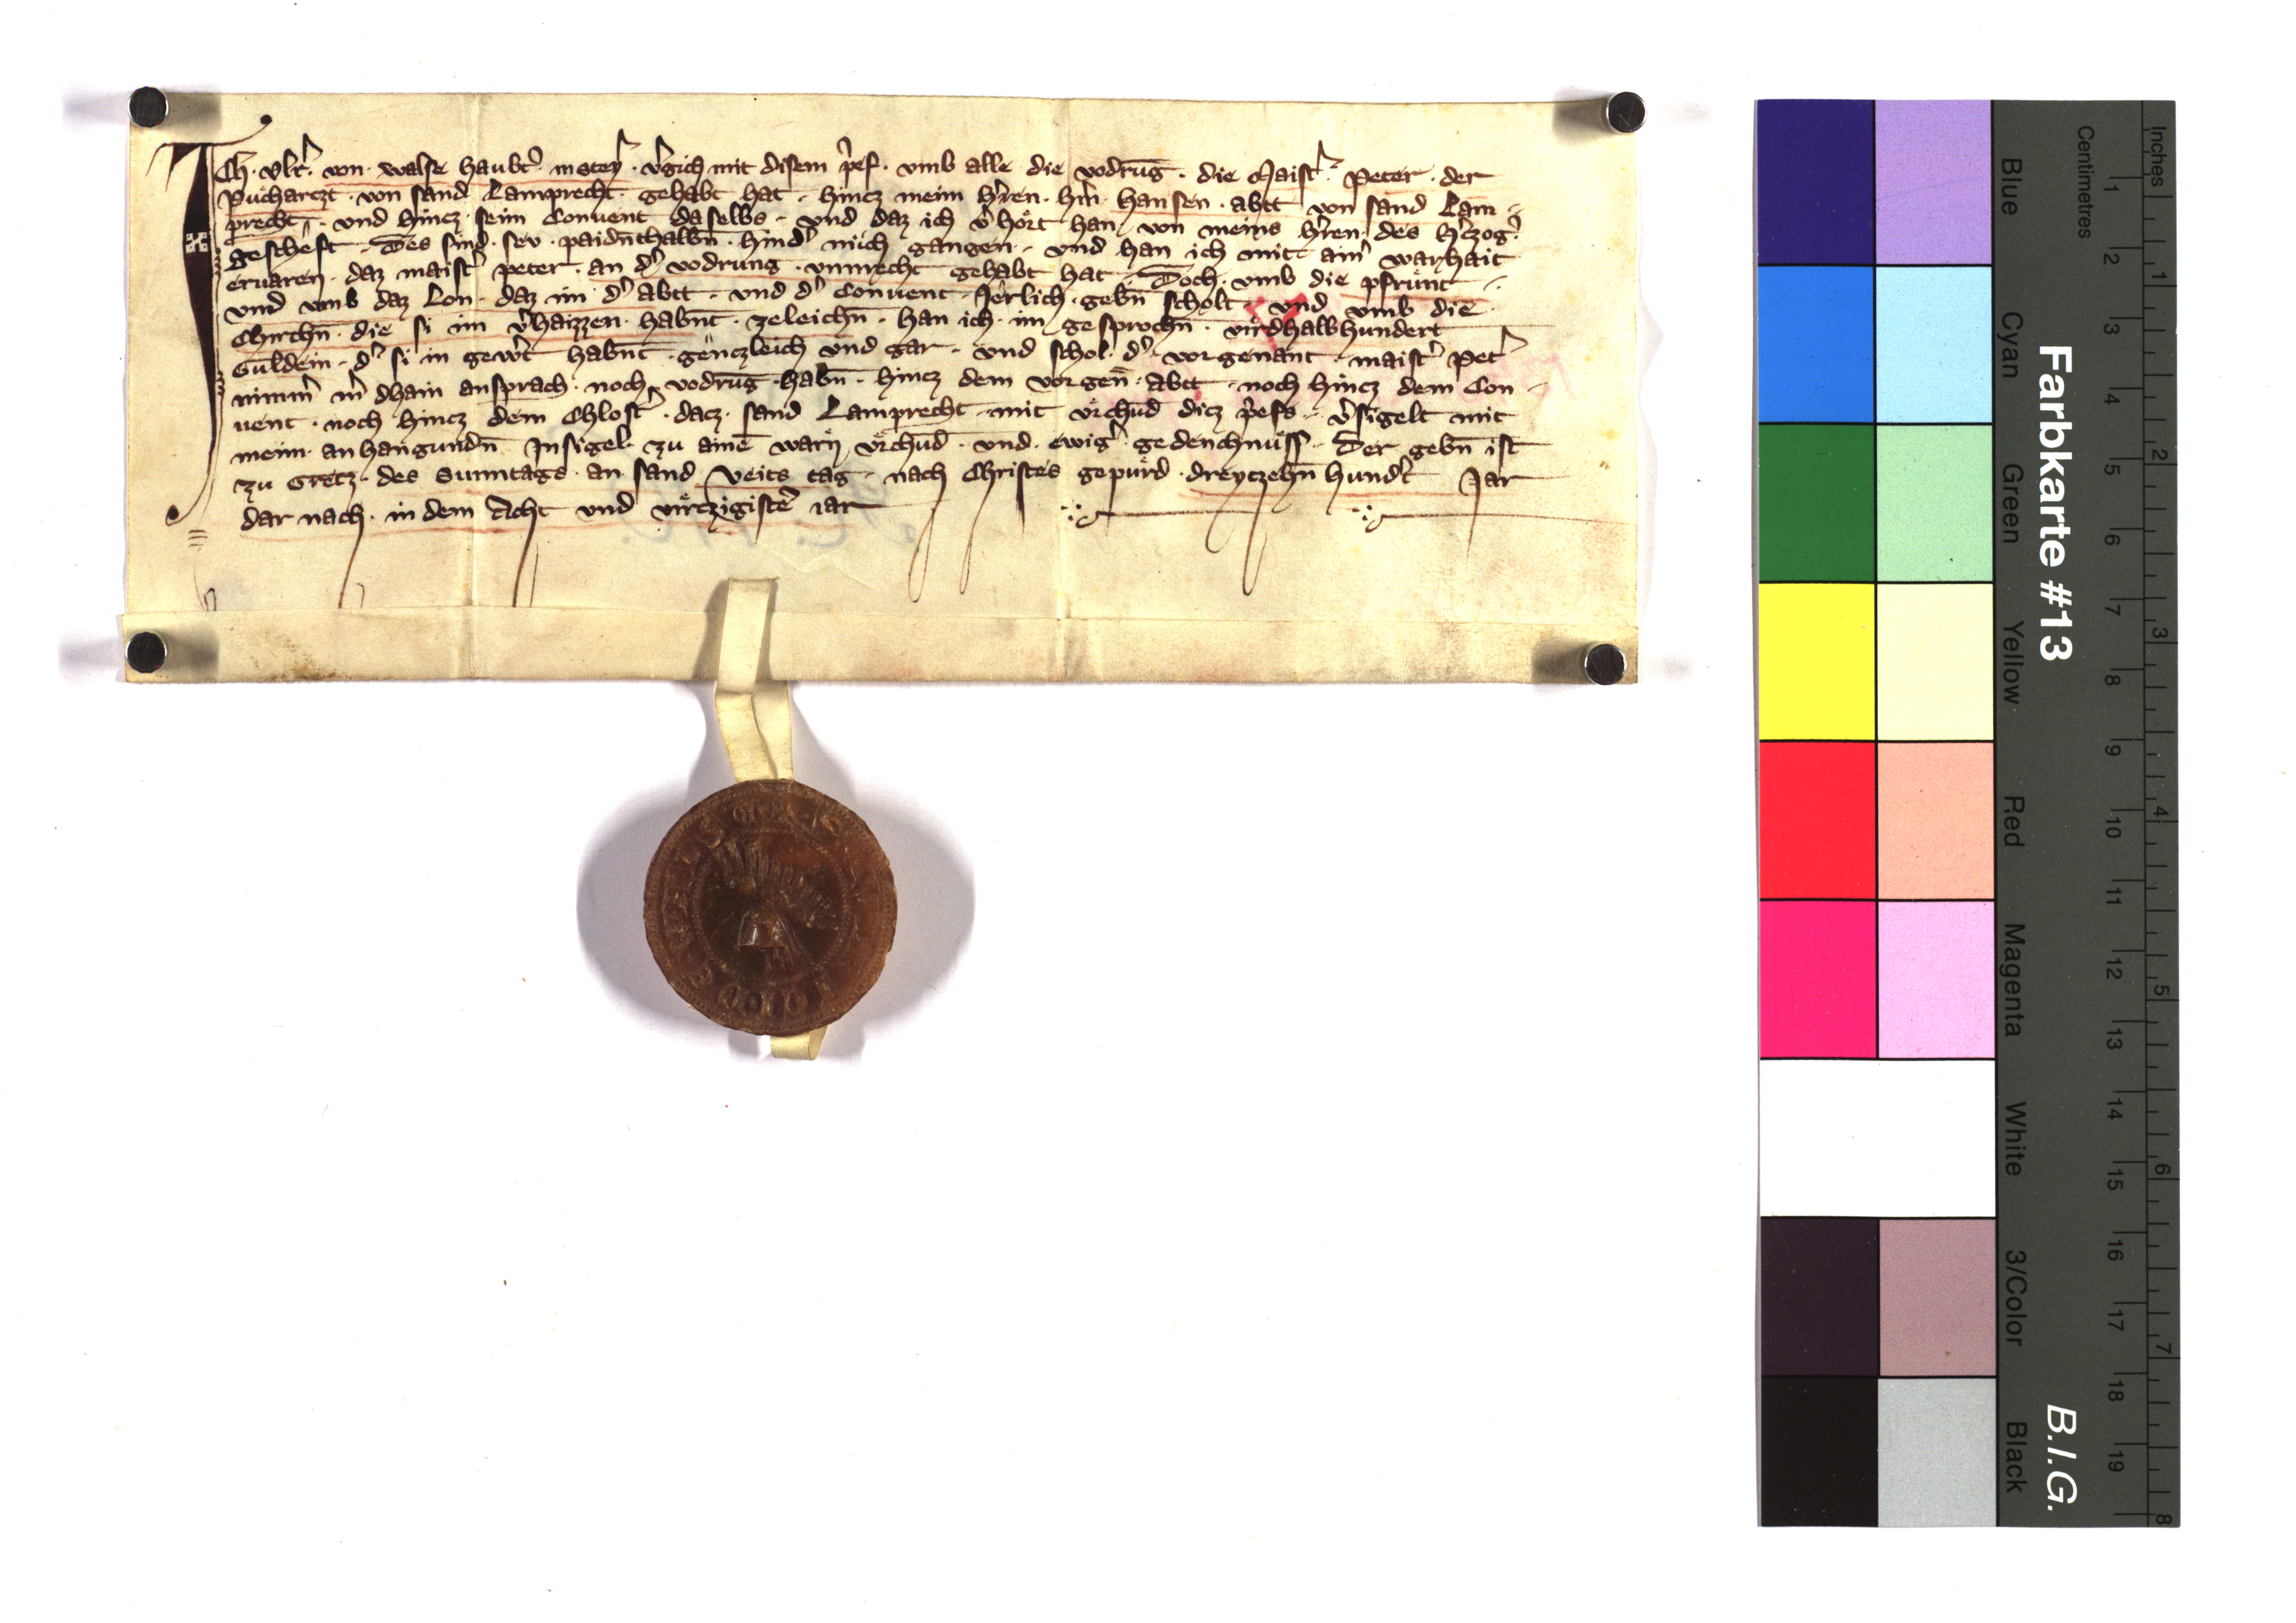 Ich · Vlr̾ · von · walse haubt̾ · in steyr · v̾gich mit disem p̾ef · vmb alle die vodrūg · die Maist̾ · Peter · der
Pucharczt · von sand Lamprecht · gehabt hat · hincz meim h̾ren · h̾n · hansen · abtt von sand Lam-
precht · und hincz · seim Conuent daselbs · und daz ich v̾hört han · von meins h̾ren · des h̾czog̾
gescheft · Des sind · sev · paidn̄thalbn̄ · hind̾ mich gangen · und han ich mit ain̾ warhait
ervaren · daz maist̾ peter · an d̾ vodrung · vnrecht gehabt hat · Doch · vmb die pfrünt ·
und vmb daz Lon · daz im d̾ abtt · und d̾ Conuent · Jërlich · gebn̄ scholt · und vmb die ·
Chirchn̄ · die si im v̾haizzen · habn̄t · zeleichn̄ · han ich · im gesprochn̄ · virdhalbhundert
Guldein · d̾ si in gew̾t habn̄t · gënczleich und gar · und schol · d̾ · vorgenant · maist̾ Pet̾
nimm̾ m̾ dhain ansprach · noch vodrūg · habn̄ · hincz dem vorgen̄ · abtt · noch hincz dem Con-
uent · noch hincz dem Chlost̾ · dacz · sand Lamprecht · mit vrchūd dicz p̾efs · v̾sigelt mit
meim · anhangundn̄ Insigel · zu ainē warn̄ vrchūd · und · ewig̾ gedenchnüss · Der gebn̄ ist
zu Gretz · des Sunntags · an sand Veits tag · nach Christes gepurd · dreyczehn̄ hund̾t Jar
dar nach · in dem Acht und virczigistē iar
Farbkarte #13
B.I.G.
Inches
Centimetres
Blue
Cyan
Green
Yellow
Red
Magenta
White
3/Color
Black
1 2 3 4 5 6 7 8 9 10 11 12 13 14 15 16 17 18 19
1 2 3 4 5 6 7 8